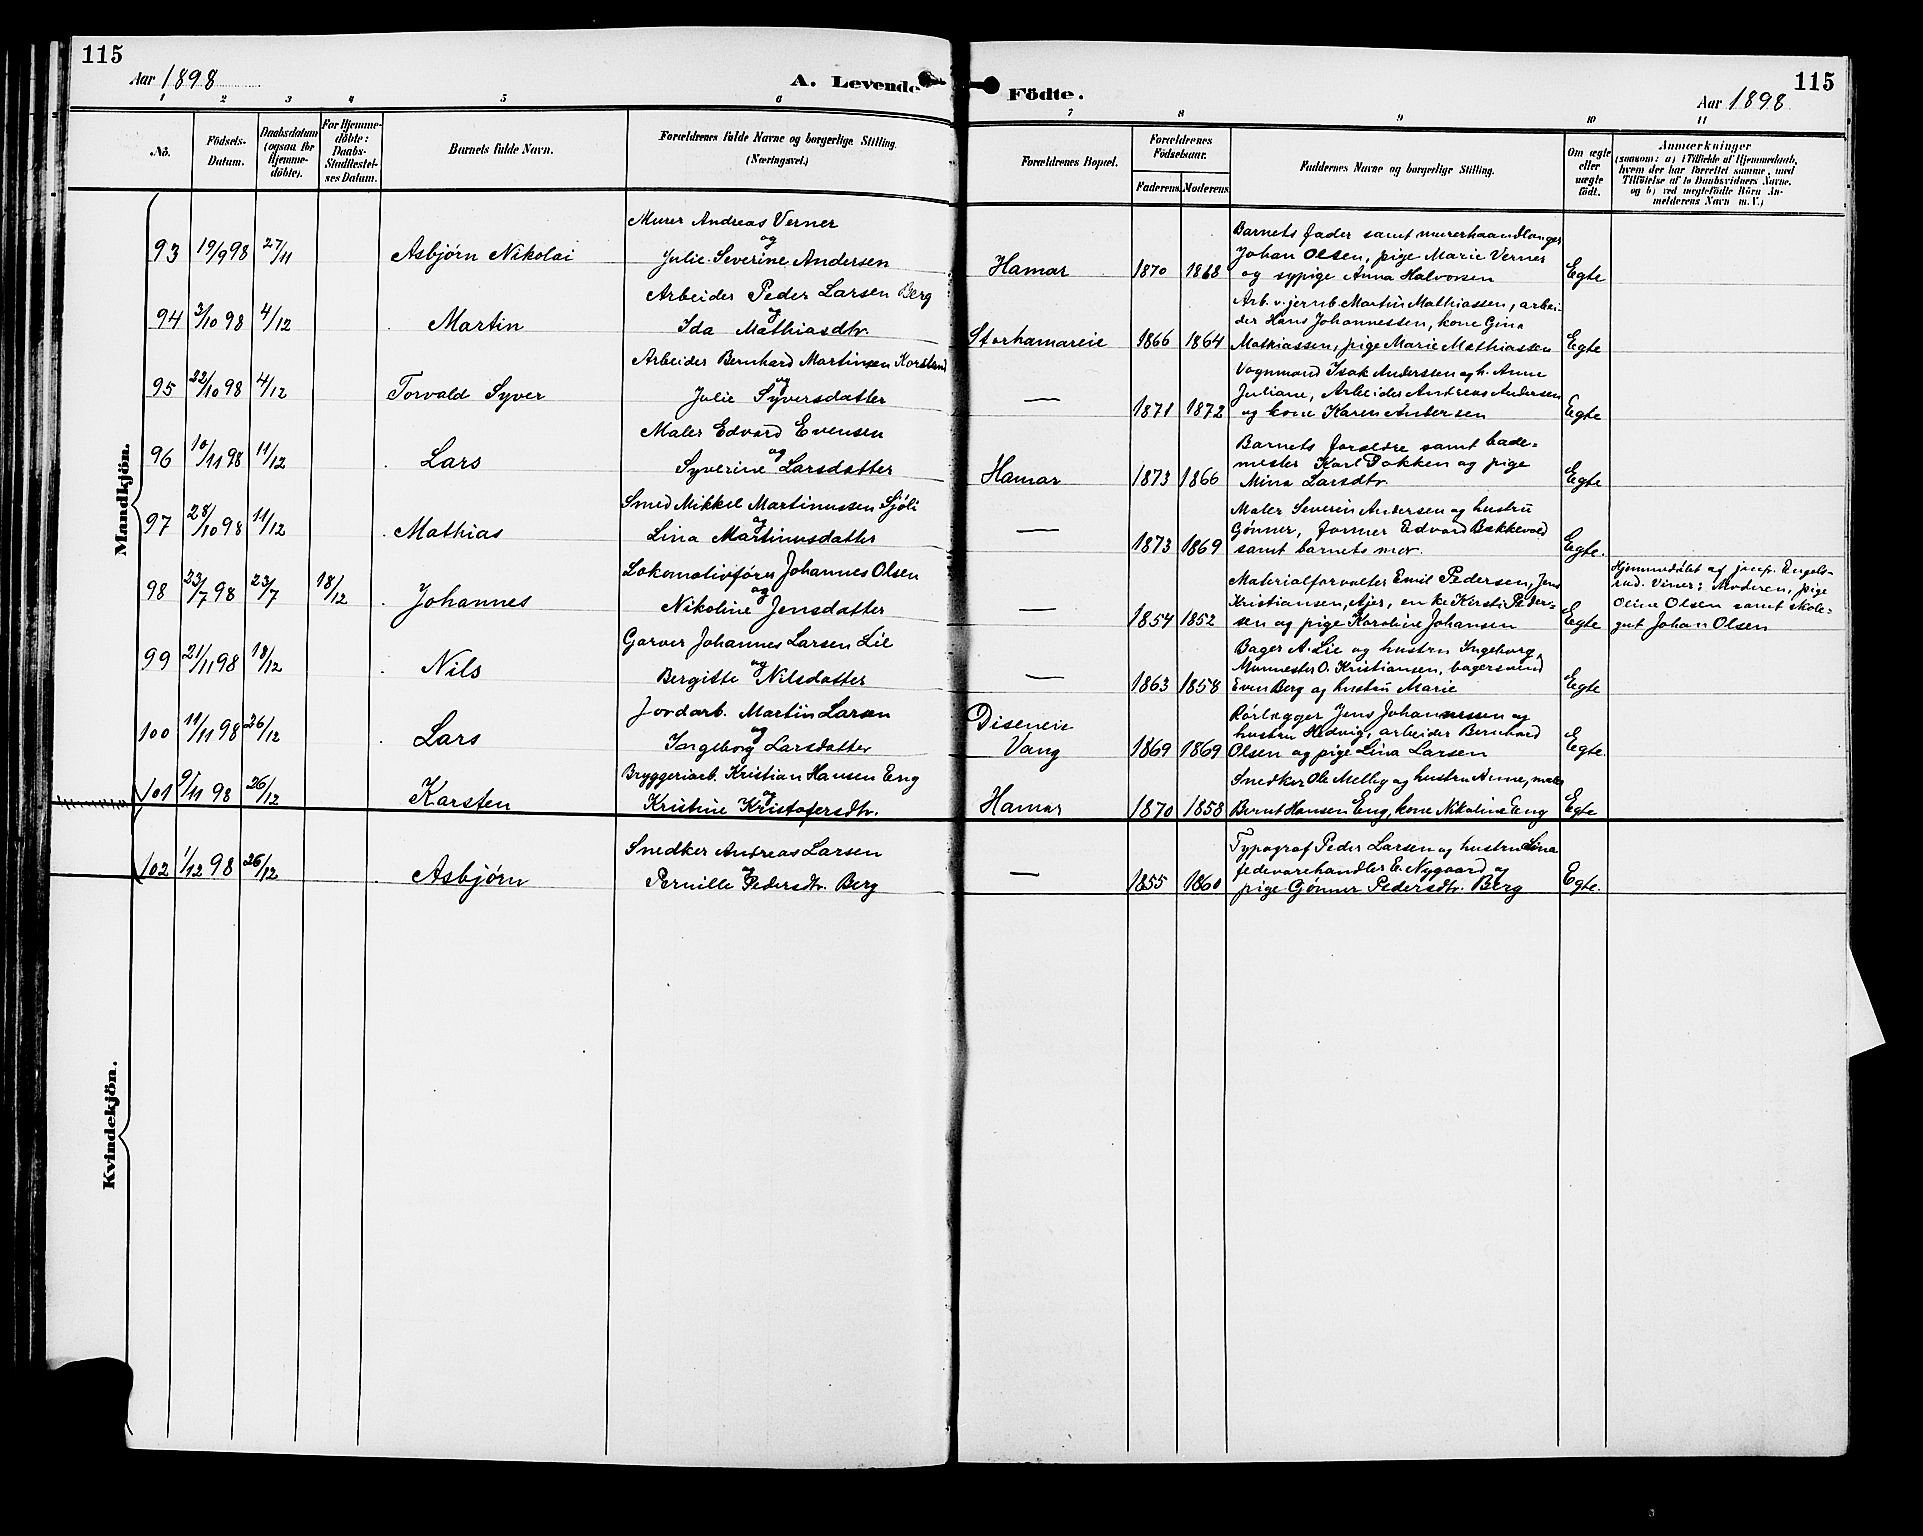 115
Aar 1898
A. Levende
Födte.
115
Aar 1898
1 2 3 4 5 6 7 8 9 10 11
No.
Födsels-
Datum.
Daabsdatum
(ogsaa for
Hjemme-
döbte).
For Hjemme-
döbte:
Daabs-
Stadfæstel-
ses Datum.
Barnets fulde Navn.
Forældrenes fulde Navne og borgerlige Stilling.
(Næringsvei.)
Forældrenes Bopæl.
Forældrenes
Födselsaar.
Faderens. Moderens.
Faddernes Navne og borgerlige Stilling.
Om ægte
eller
uægte
födt.
Anmærkninger
(saasom: a) i Tilfælde af Hjemmedaab,
hvem der har forrettet samme, med
Tilföielse af to Daabsvidners Navne,
og b) ved uægtefödte Börn An-
melderens Navn m. V.)
Mandkjön.
93 19/9 98 27/11 Asbjørn Nikolai
Murer Andreas Verner
og
Julie Severine Andersen
Hamar 1870 1868
Barnets fader samt murerhaandlanger
Johan Olsen, pige Marie Verner
og sypige Anna Halvorsen
Egte
94 3/10 98 4/12 Martin
Arbeider Peder Larsen Berg
og
Ida Mathiasdtr.
Storhamareie 1866 1864
Arb. v. jernb. Martin Mathiassen, arbei-
der Hans Johannessen, kone Gina
Mathiassen, pige Marie Mathiassen
Egte
95 22/10 98 4/12 Torvald Syver
Arbeider Bernhard Martinsen
og
Julie Syversdatter
— 1871 1872
Vognmand Isak Anderssen og h. Anne
Juliane, Arbeider Andreas Andersen
og kone Karen Andersen
Egte
96 10/11 98 11/12 Lars
Maler Edvard Evensen
og
Syverine Larsdatter
Hamar 1873 1866
Barnets forældre samt bade-
mester Karl Bakken og pige
Mina Larsdtr.
Egte
97 28/10 98 11/12 Mathias
Smed Mikkel Martinussen Sjöli
og
Lina Martinusdatter
— 1873 1869
Maler Severin Andersen og hustru
Gønner, former Edvard Bækkevold
samt barnets mor.
Egte.
98 23/7 98 23/7 18/12 Johannes
Lokomotivfører Johannes Olsen
og
Nikoline Jensdatter
— 1854 1852
Materialforvalter Emil Pedersen, Jens
Kristiansen, Ajer, enke Kersti Peder-
sen og pige Karoline Johansen
Egte
Hjemmedøbt af jomf. Engels-
rud. Vitner: Moderen, pige
Oline Olsen samt skole-
gut Johan Olsen
99 21/11 98 18/12 Nils
Garver Johannes Larsen Lie
og
Bergitte Nilsdatter
— 1863 1858
Bager A. Lie og hustru Ingeborg,
Murmester O. Kristiansen, bagersvend
Even Berg og hustru Marie
Egte
100 11/11 98 26/12 Lars
Jordarb. Martin Larsen
og
Ingeborg Larsdatter
Diseneie
Vang 1869 1869
Rørlægger Jens Johannessen og
hustru Hedvig, arbeider Bernhard
Olsen og pige Lina Larsen
Egte
101 9/11 98 26/12 Karsten
Bryggeriarb. Kristian Hansen Eng
og
Kristine Kristofersdtr.
Hamar 1870 1858
Snedker Ole Melby og hustru Anne, maler
Bernt Hansen Eng, kone Nikoline Eng
Egte
102 1/12 98 26/12 Asbjørn
Snedker Andreas Larsen
og
Pernille Pedersdtr. Berg
— 1855 1860
Typograf Peder Larsen og hustru Lina
fedevarehandler E. Nygaard og
pige Gønner Pedersdtr. Berg
Egte.
Kvindekjön.